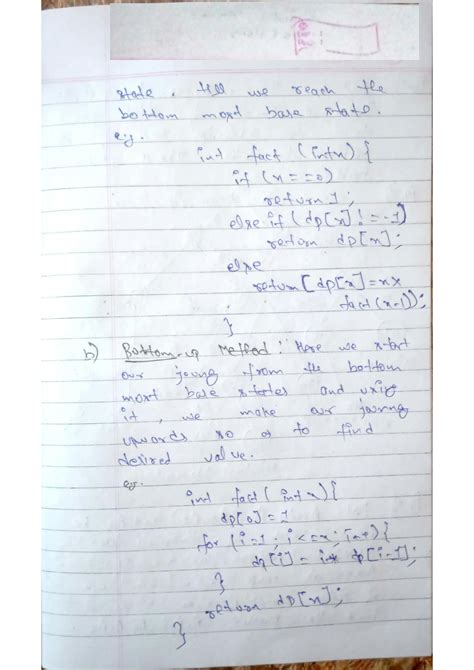 state, till we reach the
bottom most base state.
eg.
int fact (int x) {
if (x == 0)
return 1;
else if (dp[x] != -1)
return dp[x];
else
return [dp[x] = x ×
fact (x-1));
}
b) Bottom-up Method: Here we start
our journy from the bottom
most base states and using
it, we make our journy
upwards so as to find
desired value.
eg.
int fact (int x) {
dp[0] = 1
for (i=1; i<=x; i++) {
dp[i] = i* dp[i-1];
}
return dp[x];
}